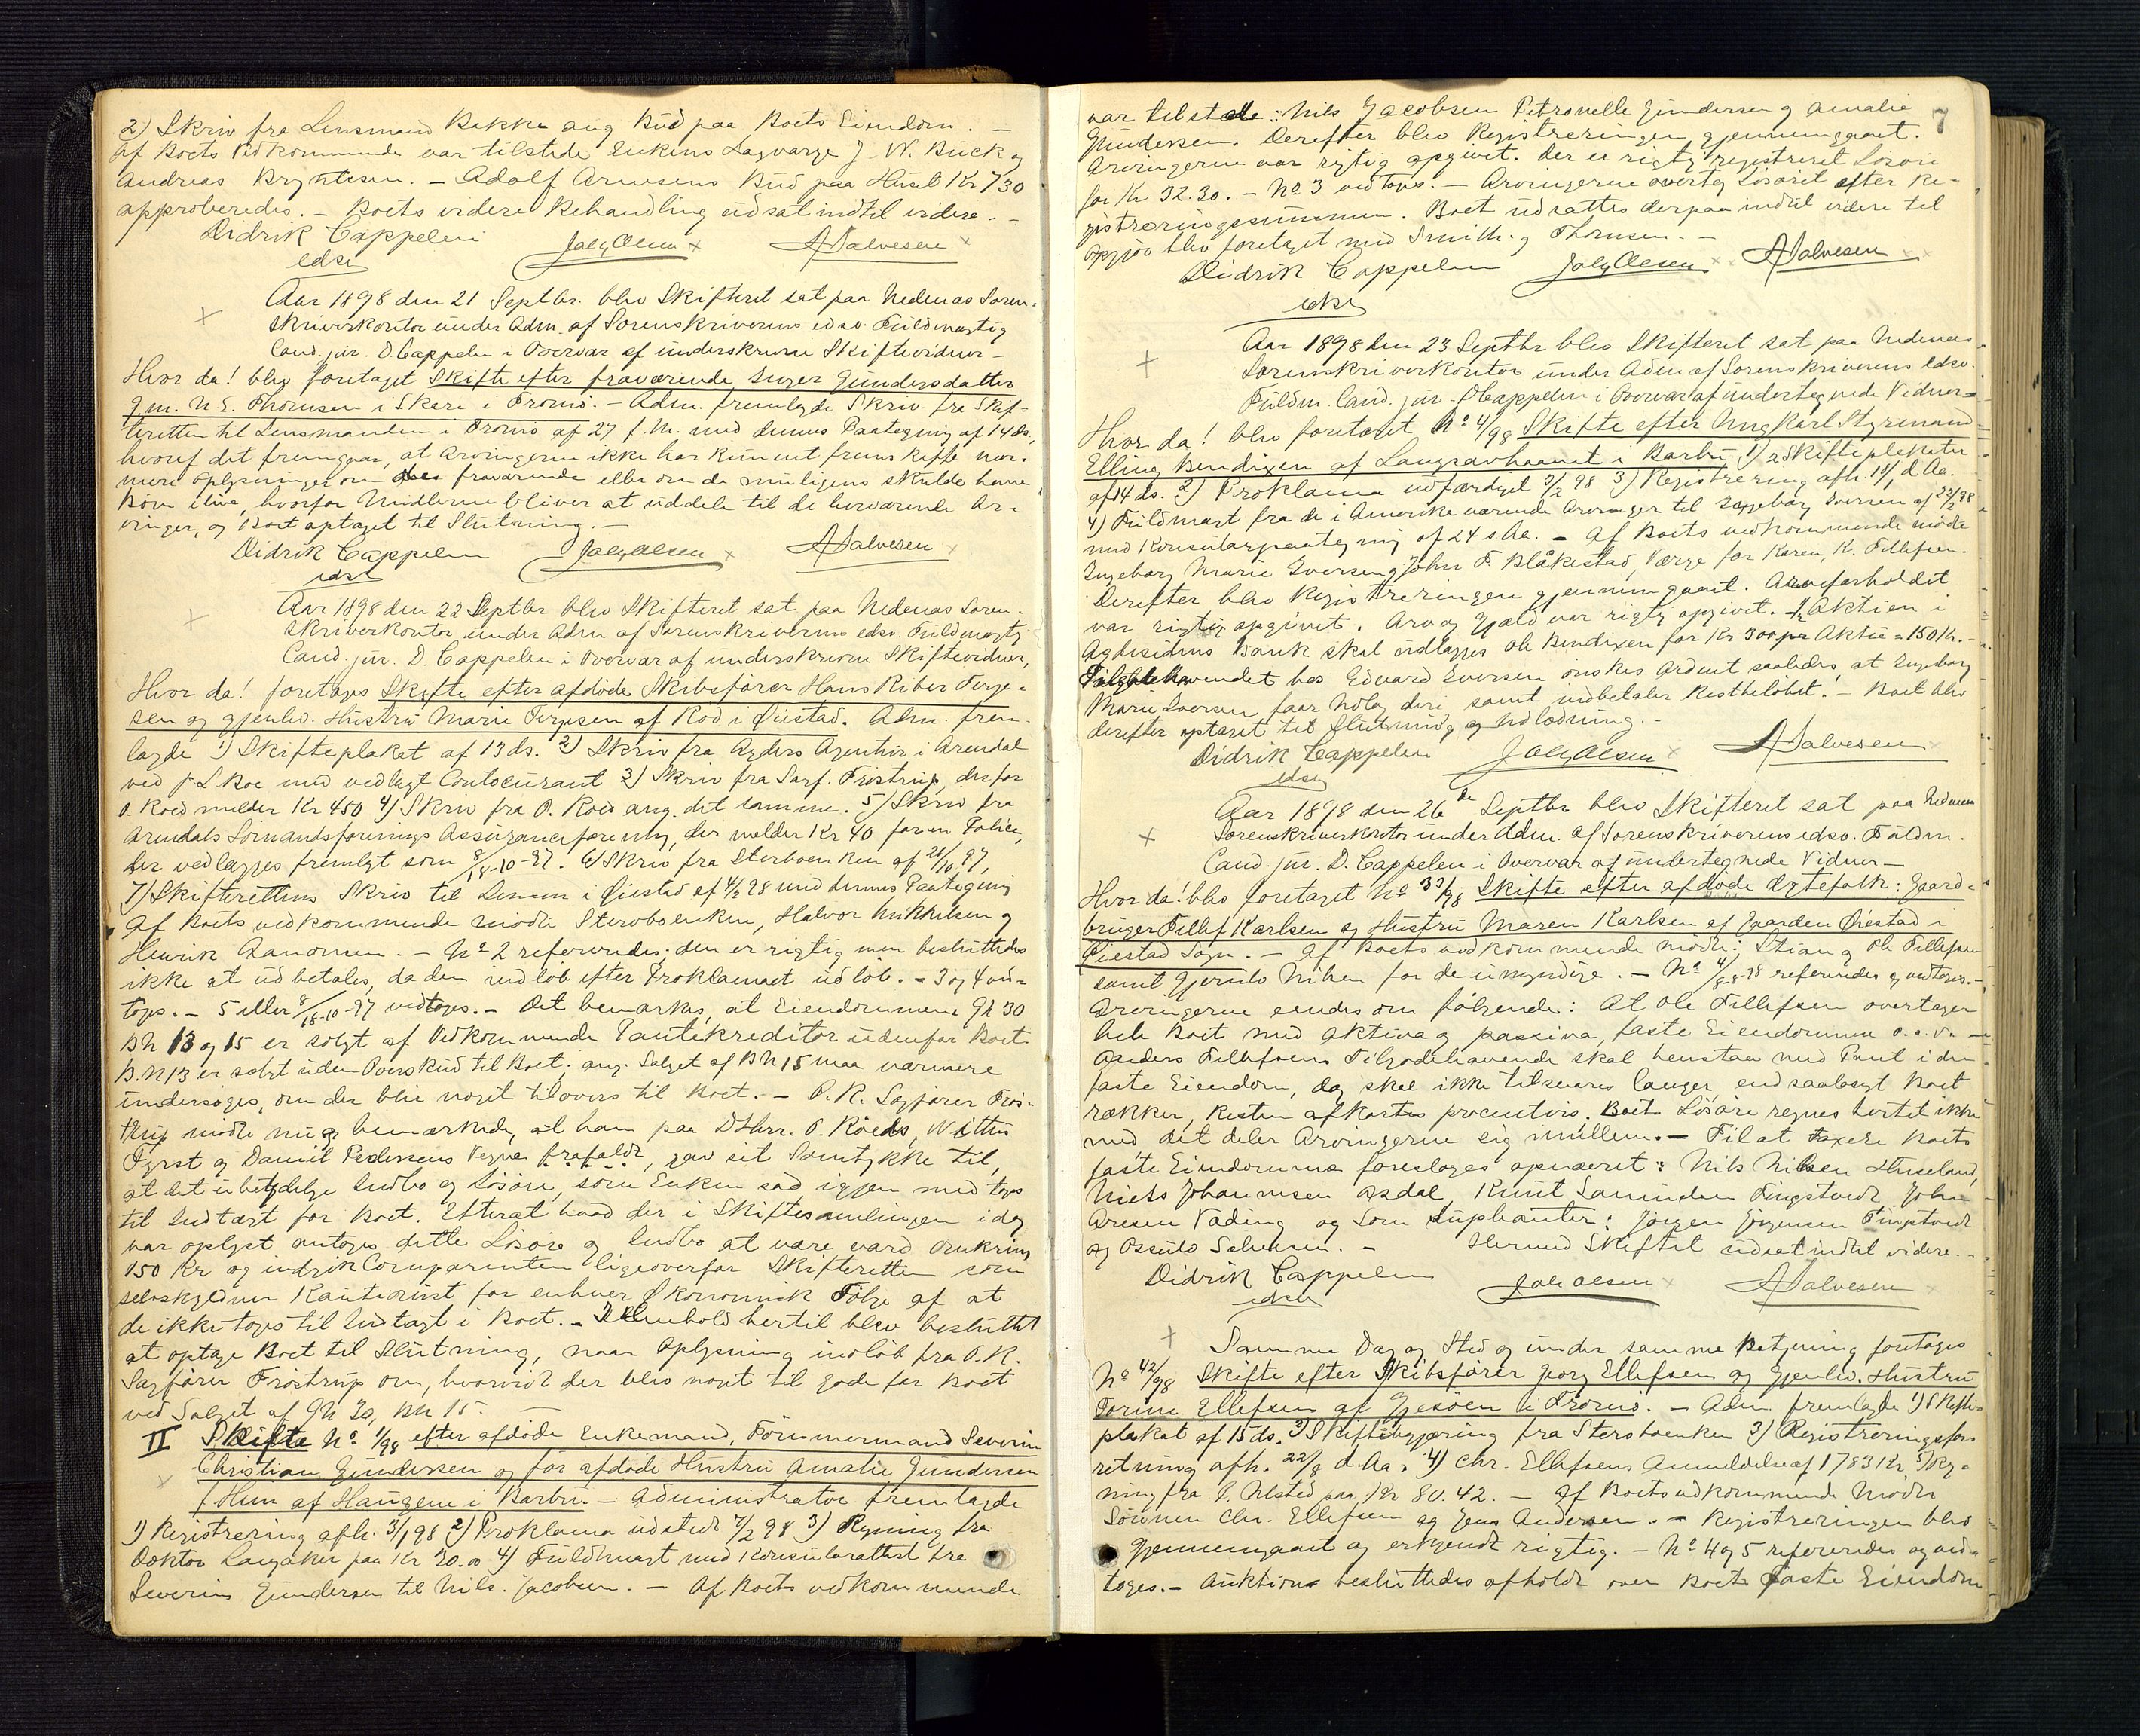 2) Skriv fra Lensmand Bakke ang Bud paa Boets Eiendom. —
Af Boets Vedkommende var tilstede Enkens Lagværge J. W. Buck og
Andreas Bryntesen. — Adolf Arnesens Bud paa Huset Kr 730
approberedes. — Boets videre Behandling udsat indtil videre. —
Didrik Cappelen
edsv
Joh Olsen
A Salvesen
Aar 1898 den 21 Septbr. blev Skifteret sat paa Nedenæs Soren-
skriverkontor under Adm. af Sorenskriverens edsv. Fuldmægtig
Cand. jur. D. Cappelen i Overvær af underskrevne Skiftevidner —
Hvor da! blev foretaget Skifte efter fraværende Inger Gundersdatter
gm. N S. Thomsen i Skare i Tromø. — Adm. fremlagde Skriv fra Skif-
teretten til Lensmanden i Tromø af 27 f. M. med dennes Paategning af 14 ds,
hvoraf det fremgaar, at Arvingerne ikke har kunnet fremskaffe nær-
mere Oplysninger om den fraværende eller om de muligens skulde have
Børn ilive, hvorfor Midlerne bliver at uddele til de herværende Ar-
vinger, og Boet optaget til Slutning. —
Didrik Cappelen
edsv
Joh Olsen
A Salvesen
Aar 1898 den 22 Septbr blev Skifteret sat paa Nedenæs Soren-
skriverkontor under Adm af Sorenskriverens edsv. Fuldmægtig
Cand. jur. D. Cappelen i Overvær af underskrevne Skiftevidner,
Hvor da! foretages Skifte efter afdøde Skibsfører Hans Riber Terje-
sen og gjenlev. Hustru Marie Terjesen af Rød i Øiestad. Adm. frem-
lagde 1) Skifteplakat af 13 ds. 2) Skriv fra Agders Agentur i Arendal
ved J L Boe med vedlagt Contocurant 3) Skriv fra Sagf. Frøstrup, der for
O. Roed melder Kr 450 4) Skriv fra O. Roed ang. det samme. 5) Skriv fra
Arendals Sømandsforenings Assuranceforening, der melder Kr 40 for en Police,
der vedlægges fremlagt som 8/18-10-97. 6) Skriv fra Sterboenken af 26/10 97,
7) Skifterettens Skriv til Lensm i Øiestad af 4/2 98 med dennes Paategning
Af Boets vedkommende mødte Sterboenken, Halvor Mikkelsen og
Henrik Aanonsen. — No 2 refereredes; den er rigtig men besluttedes
ikke at udbetales, da den indløb efter Proklamaet udløb. — 3 og 4 ved-
toges. — 5 eller 8/18-10-97 vedtoges. — Det bemærkes, at Eiendommene Gh 30
Bh 13 og 15 er solgt af Vedkommende Pantekreditor udenfor Boet
B.N 13 er solgt uden Overskud til Boet; ang. Salget af BN 15 maa nærmere
undersøges, om der blir noget tilovers til Boet. — O. R. Sagfører Frøs-
trup mødte nu og bemærkede, at han paa DHrr. O. Roeds, Witus
Tyrst og Daniel Pedersens Vegne frafaldt, gav sit Samtykke til,
at det ubetydelige Indbo og Løsøre, som Enken sad igjen med toges
til Indtægt for Boet. Efterat hvad der i Skiftesamlingen idag
var oplyst antoges dette Løsøre og Indbo at være værd omkring
150 Kr og indgik Comparenten ligeoverfor Skifteretten som
selvskyldner Kautionist for enhver Økonomisk Følge af at
de ikke toges til Indtægt i Boet. — I Henhold hertil blev besluttet
at optage Boet til Slutning, naar Oplysning indløb fra O. R.
Sagfører Frøstrup om, hvorvidt der blev noget til gode for Boet
ved Salget af Gh 30, Bh 15. —
II Skifte No 1/98 efter afdøde Enkemand, Tømmermand Severin
Christian Gundersen og før afdøde Hustru Amalie Gundersen
f. Hem af Haugene i Barbu — Administrator fremlagde
1) Registrering afh. 3/1 98 2) Proklama udstedt 7/2 98 3) Regning fra
Doktor Langaker paa Kr 30.00 4) Fuldmagt med Konsularattest fra
Severin Gundersen til Nils. Jacobsen. — Af Boets vedkommende
7
var tilstede: Nils Jacobsen Petronelle Gundersen og Amalie
Gundersen. Derefter blev Registreringen gjennemgaaet.
Arvingerne var rigtig opgivet. Der er rigtig registreret Løsøre
for Kr 32.30. — No 3 vedtoges. — Arvingerne overtog Løsøret efter Re-
gistreringssummen. Boet udsattes derpaa indtil videre til
opgjør blev foretaget med Smith og Thomsen. —
Didrik Cappelen
edsv
Joh Olsen
A Salvesen
Aar 1898 den 23 Septbr blev Skifteret sat paa Nedenæs
Sorenskriverkontor under Adm af Sorenskriverens edsv.
Fuldm. Cand. jur. D Cappelen i Overvær af undertegnede Vidner —
Hvor da! blev foretaget No 4/98 Skifte efter Ungkarl Styrmand
Elling Bendixen af Langsævhavnet i Barbu 1) 2 Skifteplakater
af 14 ds. 2) Proklama udfærdiget 3/2 98 3) Registrering afh. 11/1 d. Aa.
4) Fuldmagt fra de i Amerika værende Arvinger til Ingeborg Iversen af 22/2 98
med Konsularpaategning af 24 s Aa. — Af Boets vedkommende møde
Ingeborg Marie Iversen og John F. Blåkestad, Værge for Karen K. Tellefsen.
Derefter blev Registreringen gjennemgaaet. Arveforholdet
var rigtig opgivet. Arv og Gjæld var rigtig opgivet. — 1/2 Aktien i
Agdesidens Bank skal udlægges Ole Bendixen for Kr 300 pr Aktie = 150 Kr. —
Tilgodehavendet hos Edvard Iversen ønskes ordnet saaledes, at Ingeborg
Marie Iversen faar Udlæg deri samt indbetaler Restbeløbet. — Boet blev
derefter optaget til Slutning og Udlodning. —
Didrik Cappelen
edsv
Joh Olsen
A Salvesen
Aar 1898 den 26de Septbr blev Skifteret sat paa Nedenæs
Sorenskriverkontor under Adm. af Sorenskriverens edsv. Fuldm.
Cand. jur. D. Cappelen i Overvær af undertegnede Vidner —
Hvor da! blev foretaget No 33/98 Skifte efter afdøde Ægtefolk: Gaard-
bruger Tellef Karlsen og Hustru Maren Karlsen af Gaarden Øiestad i
Øiestad Sogn. — Af Boets vedkommende mødte: Stian og Ole Tellefsen
samt Gjeruld Nilsen for de umyndige. — No 4/8-8-98 refereredes og vedtoges. —
Arvingerne enedes om følgende: At Ole Tellefsen overtager
hele Boet med aktiva og passiva, faste Eiendomme o. s. v. —
Anders Tellefsens Tilgodehavende skal henstaa med Pant i den
faste Eiendom, dog skal ikke tilsvares længer, end saalangt Boet
rækker, Resten afkortes procentvis. Boets Løsøre regnes hertil ikke
med det deler Arvingerne sig imellem. — Til at taxere Boets
faste Eiendomme foreslages opnævnet: Nils Nilsen Huseland,
Niels Johannesen Asdal, Knut Samuelsen Tingstvedt, John
Aresen Vading og Som Suplanter: Jørgen Jørgensen Tingstvedt
og Ossuld Salvesen. — Hermed Skiftet udsat indtil videre. —
Didrik Cappelen
edsv
Joh Olsen
A Salvesen
Samme Dag og Sted og under samme Betjening foretages
No 42/98 Skifte efter Skibsfører Jørg Ellefsen og Gjenlev. Hustru
Torine Ellefsen af Gjesøen i Tromø. — Adm. fremlagde 1) Skifte-
plakat af 15 ds. 2) Skiftebegjæring fra Sterboenken 3) Registreringsfor-
retning afh. 22/8 d. Aa. 4) Chr. Ellefsens Anmeldelse af 1783 Kr 5) Reg-
ning fra C. Ulsted paa Kr 80.42. — Af Boets vedkommende Mødte
Sønnen Chr. Ellefsen og Jens Andersen. — Registreringen blev
gjennemgaaet og erkjendt rigtig. — No 4 og 5 refereredes og ved-
toges. — Auktion besluttedes afholdt over Boets faste Eiendom